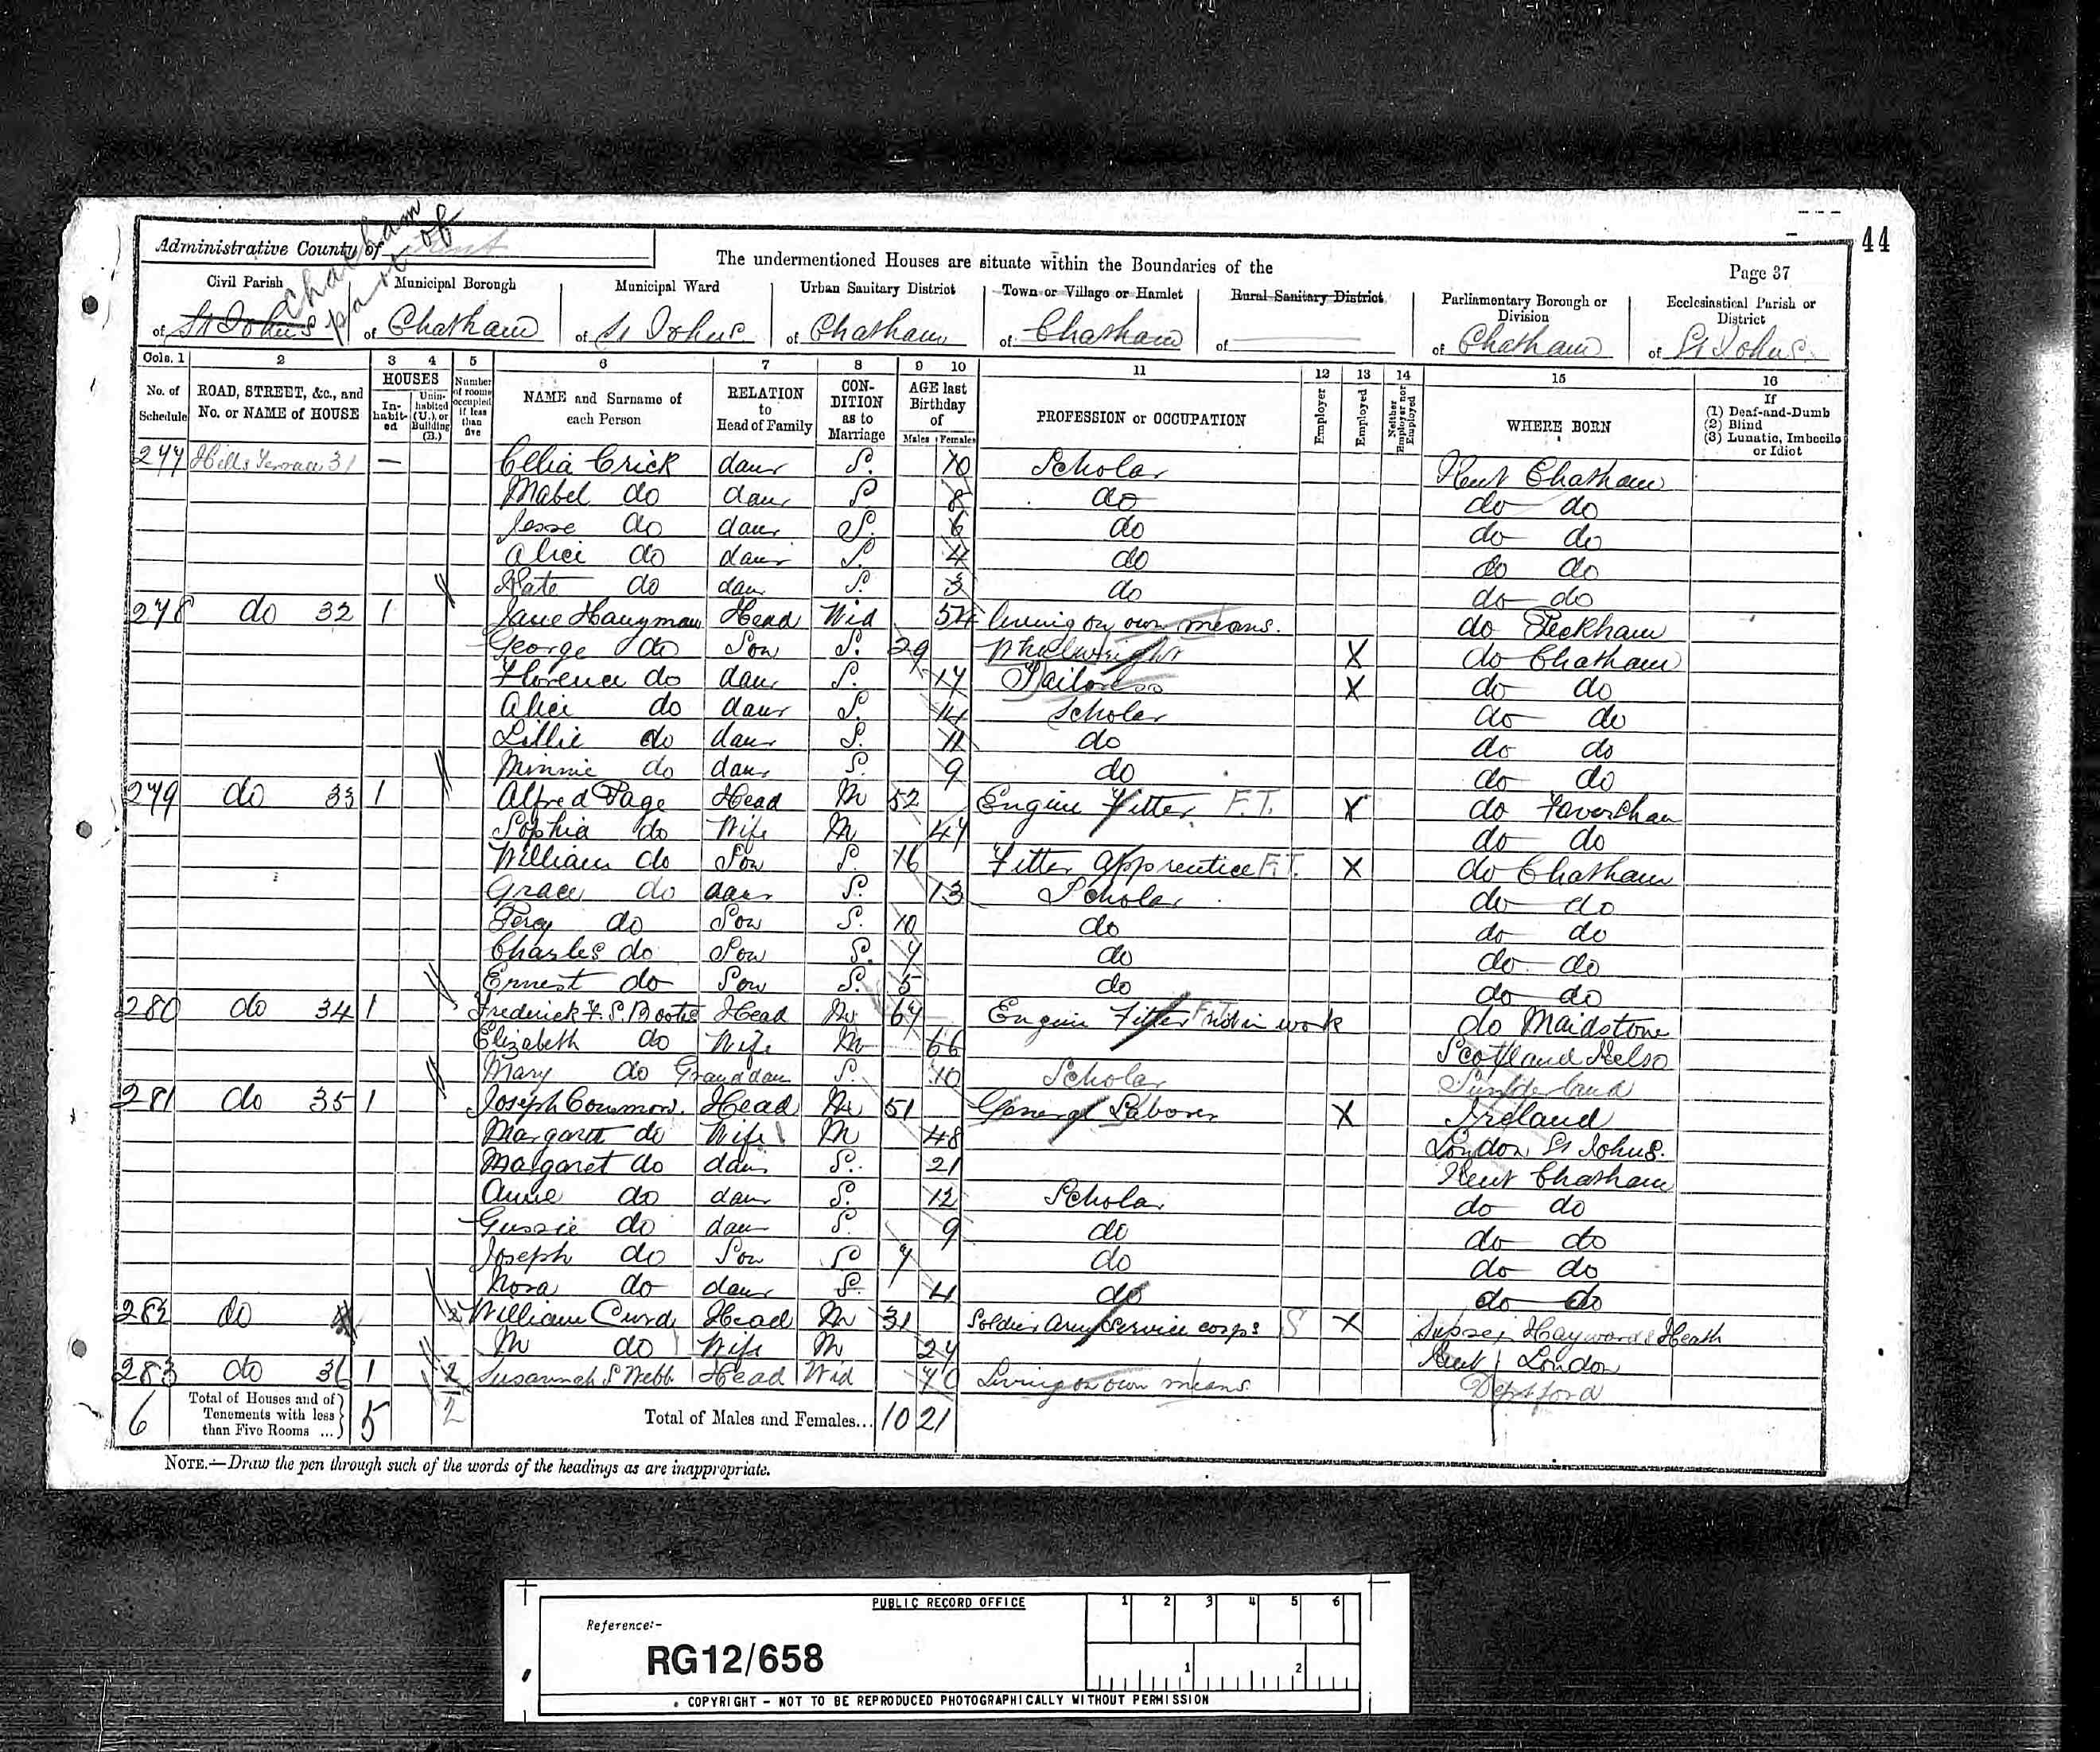 44
Administrative County of Kent
Chatham
part of
The undermentioned Houses are situate within the Boundaries of the
Page 37
Civil Parish
Municipal Borough
Municipal Ward
Urban Sanitary District
Town or Village or Hamlet
Rural Sanitary District
Parliamentary Borough or Division
Ecclesiastical Parish or District
of St Johns
of Chatham
of St Johns
of Chatham
of Chatham
of
of Chatham
of St Johns
Cols. 1 2 3 4 5 6 7 8 9 10 11 12 13 14 15 16
No. of Schedule
ROAD, STREET, &c., and No. or NAME of HOUSE
HOUSES
In-habit-ed
Unin-habited (U.), or Building (B.)
Number of rooms occupied if less than five
NAME and Surname of each Person
RELATION to Head of Family
CON-DITION as to Marriage
AGE last Birthday of
Males Females
PROFESSION or OCCUPATION
Employer
Employed
Neither Employer nor Employed
WHERE BORN
If
(1) Deaf-and-Dumb
(2) Blind
(3) Lunatic, Imbecile or Idiot
277 Hills Terrace 31 — Celia Crick daur S. 10 Scholar Kent Chatham
Mabel do daur S 8 do do do
Jesse do daur S. 6 do do do
Alice do daur S. 4 do do do
Kate do daur S. 3 do do do
278 do 32 1 Jane Hangman Head Wid 54 living on own means. do Peckham
George do Son S. 29 Wheelwright X do Chatham
Florence do daur S. 17 Tailoress X do do
Alice do daur S. 14 Scholar do do
Lillie do daur S. 11 do do do
Minnie do daur S. 9 do do do
279 do 33 1 Alfred Page Head M 52 Engine Fitter F.T. X do Faversham
Sophia do Wife M 47 do do
William do Son S. 16 Fitter Apprentice F.T. X do Chatham
Grace do daur S. 13 Scholar do do
Percy do Son S. 10 do do do
Charles do Son S. 7 do do do
Ernest do Son S. 5 do do do
280 do 34 1 Frederick F. S. Boots Head M 67 Engine Fitter F.T. not in work do Maidstone
Elizabeth do Wife M 66 Scotland Kelso
Mary do Granddaur S. 10 Scholar Sunderland
281 do 35 1 Joseph Head M 51 General Laborer X Ireland
Margaret do Wife M 48 London St Johns.
Margaret do daur S. 21 Kent Chatham
Annie do daur S. 12 Scholar do do
Gussie do daur S. 9 do do do
Joseph do Son S 7 do do do
Nora do daur S. 4 do do do
282 do 2 William Curd Head M 31 Soldier Army Service corps S X Haywards Heath
M do Wife M 27 Kent London
283 do 36 1 2 Susannah S Webb Head Wid 70 Living on own means. Deptford
6 Total of Houses and of Tenements with less than Five Rooms ... 5 2 Total of Males and Females... 10 21
NOTE.—Draw the pen through such of the words of the headings as are inappropriate.
PUBLIC RECORD OFFICE
1 2 3 4 5 6
Reference:-
RG12/658
1 2
COPYRIGHT - NOT TO BE REPRODUCED PHOTOGRAPHICALLY WITHOUT PERMISSION